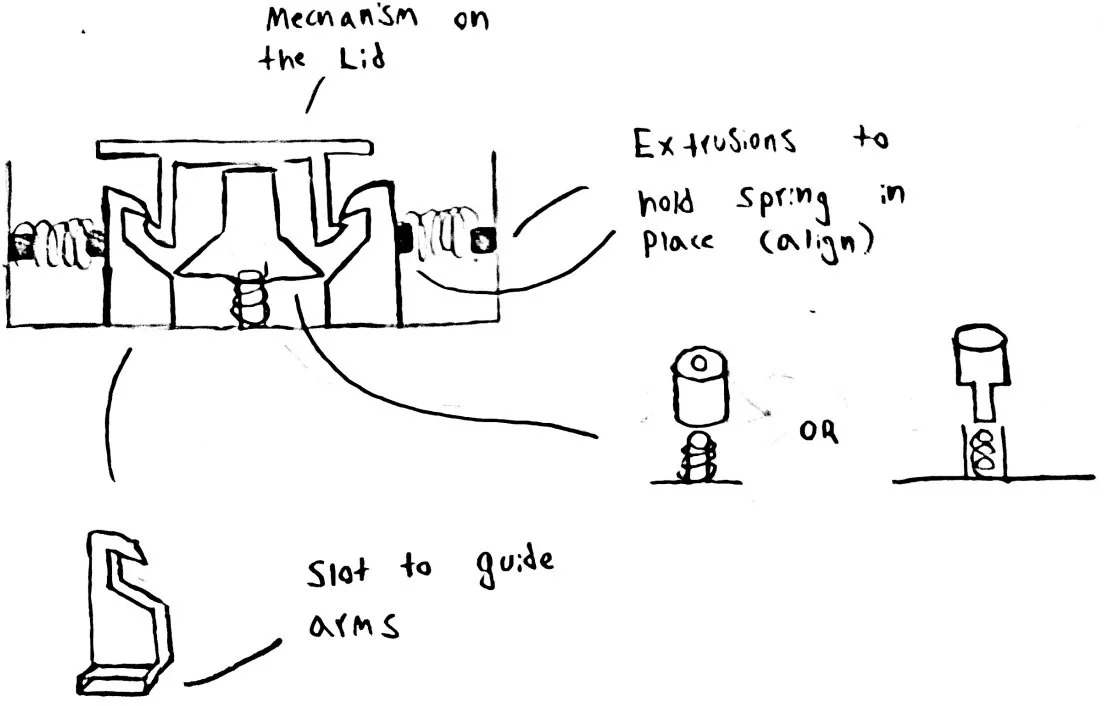 Mechanism on
the Lid
Extrusions to
hold spring in
place (align)
OR
Slot to guide
arms